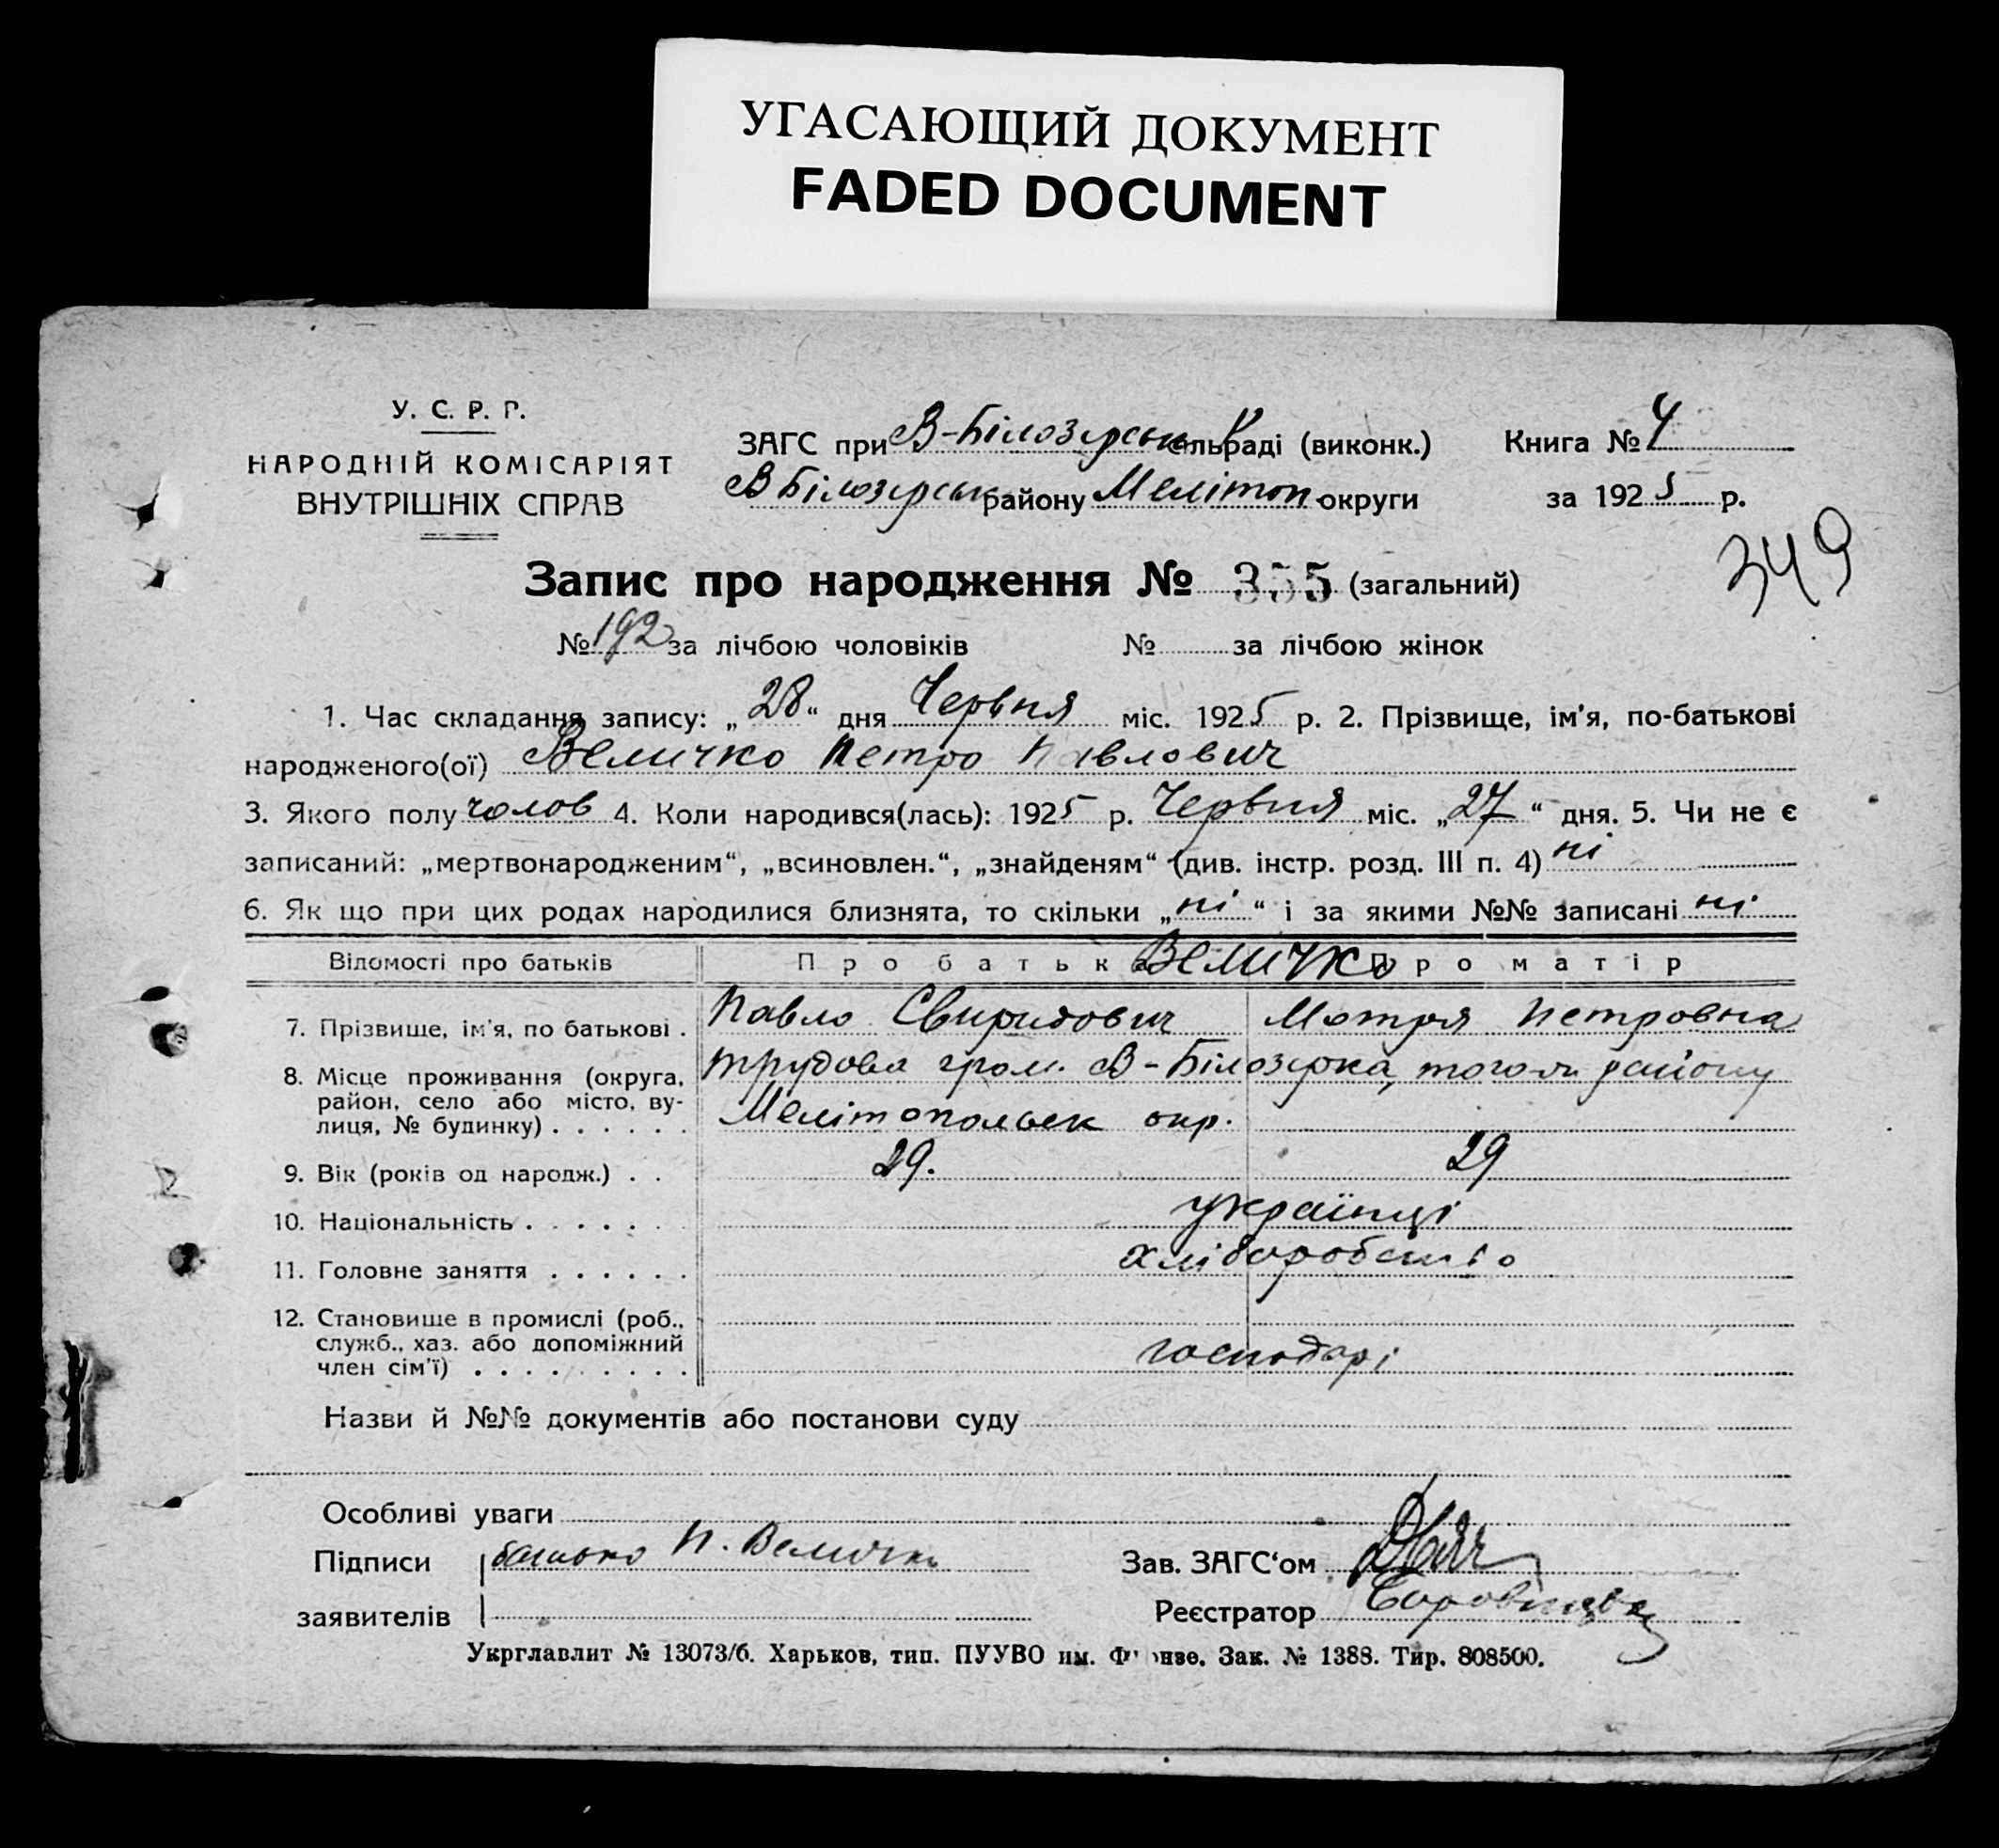 УГАСАЮЩИЙ ДОКУМЕНТ
FADED DOCUMENT
У. С. Р. Р.
НАРОДНІЙ КОМІСАРІЯТ
ВНУТРІШНІХ СПРАВ
ЗАГС при В-Білозірськ сільраді (виконк.) Книга № 4
В Білозірськ району Мелітоп округи за 1925 р.
349
Запис про народження № 355 (загальний)
№ 192 за лічбою чоловіків № за лічбою жінок
1. Час складання запису: „28“ дня Червня міс. 1925 р. 2. Прізвище, ім'я, по-батькові
народженого(ої) Величко Петро Павлович
3. Якого полу чолов 4. Коли народився(лась): 1925 р. Червня міс. „27“ дня. 5. Чи не є
записаний: „мертвонародженим“, „всиновлен.“, „знайденям“ (див. інстр. розд. III п. 4) ні
6. Як що при цих родах народилися близнята, то скільки „ні“ і за якими №№ записані ні
Відомості про батьків Про батька Величко Про матір
7. Прізвище, ім'я, по батькові . Павло Свиридович Мотря Петровна
8. Місце проживання (округа, трудова гром. В-Білозірка, того-ж району
район, село або місто, ву-
лиця, № будинку) . . . . . . Мелітопольск окр.
9. Вік (років од народж.) . . 29. 29
10. Національність . . . . . . українці
11. Головне заняття . . . . . . хліборобство
12. Становище в промислі (роб.,
служб., хаз. або допоміжний
член сім'ї) . . . . . . . . . господарі
Назви й №№ документів або постанови суду
Особливі уваги
Підписи батько П. Величко Зав. ЗАГС‘ом
заявителів Реєстратор
Укрглавлит № 13073/б. Харьков, тип. ПУУВО им. Фрунзе. Зак. № 1388. Тир. 808500.